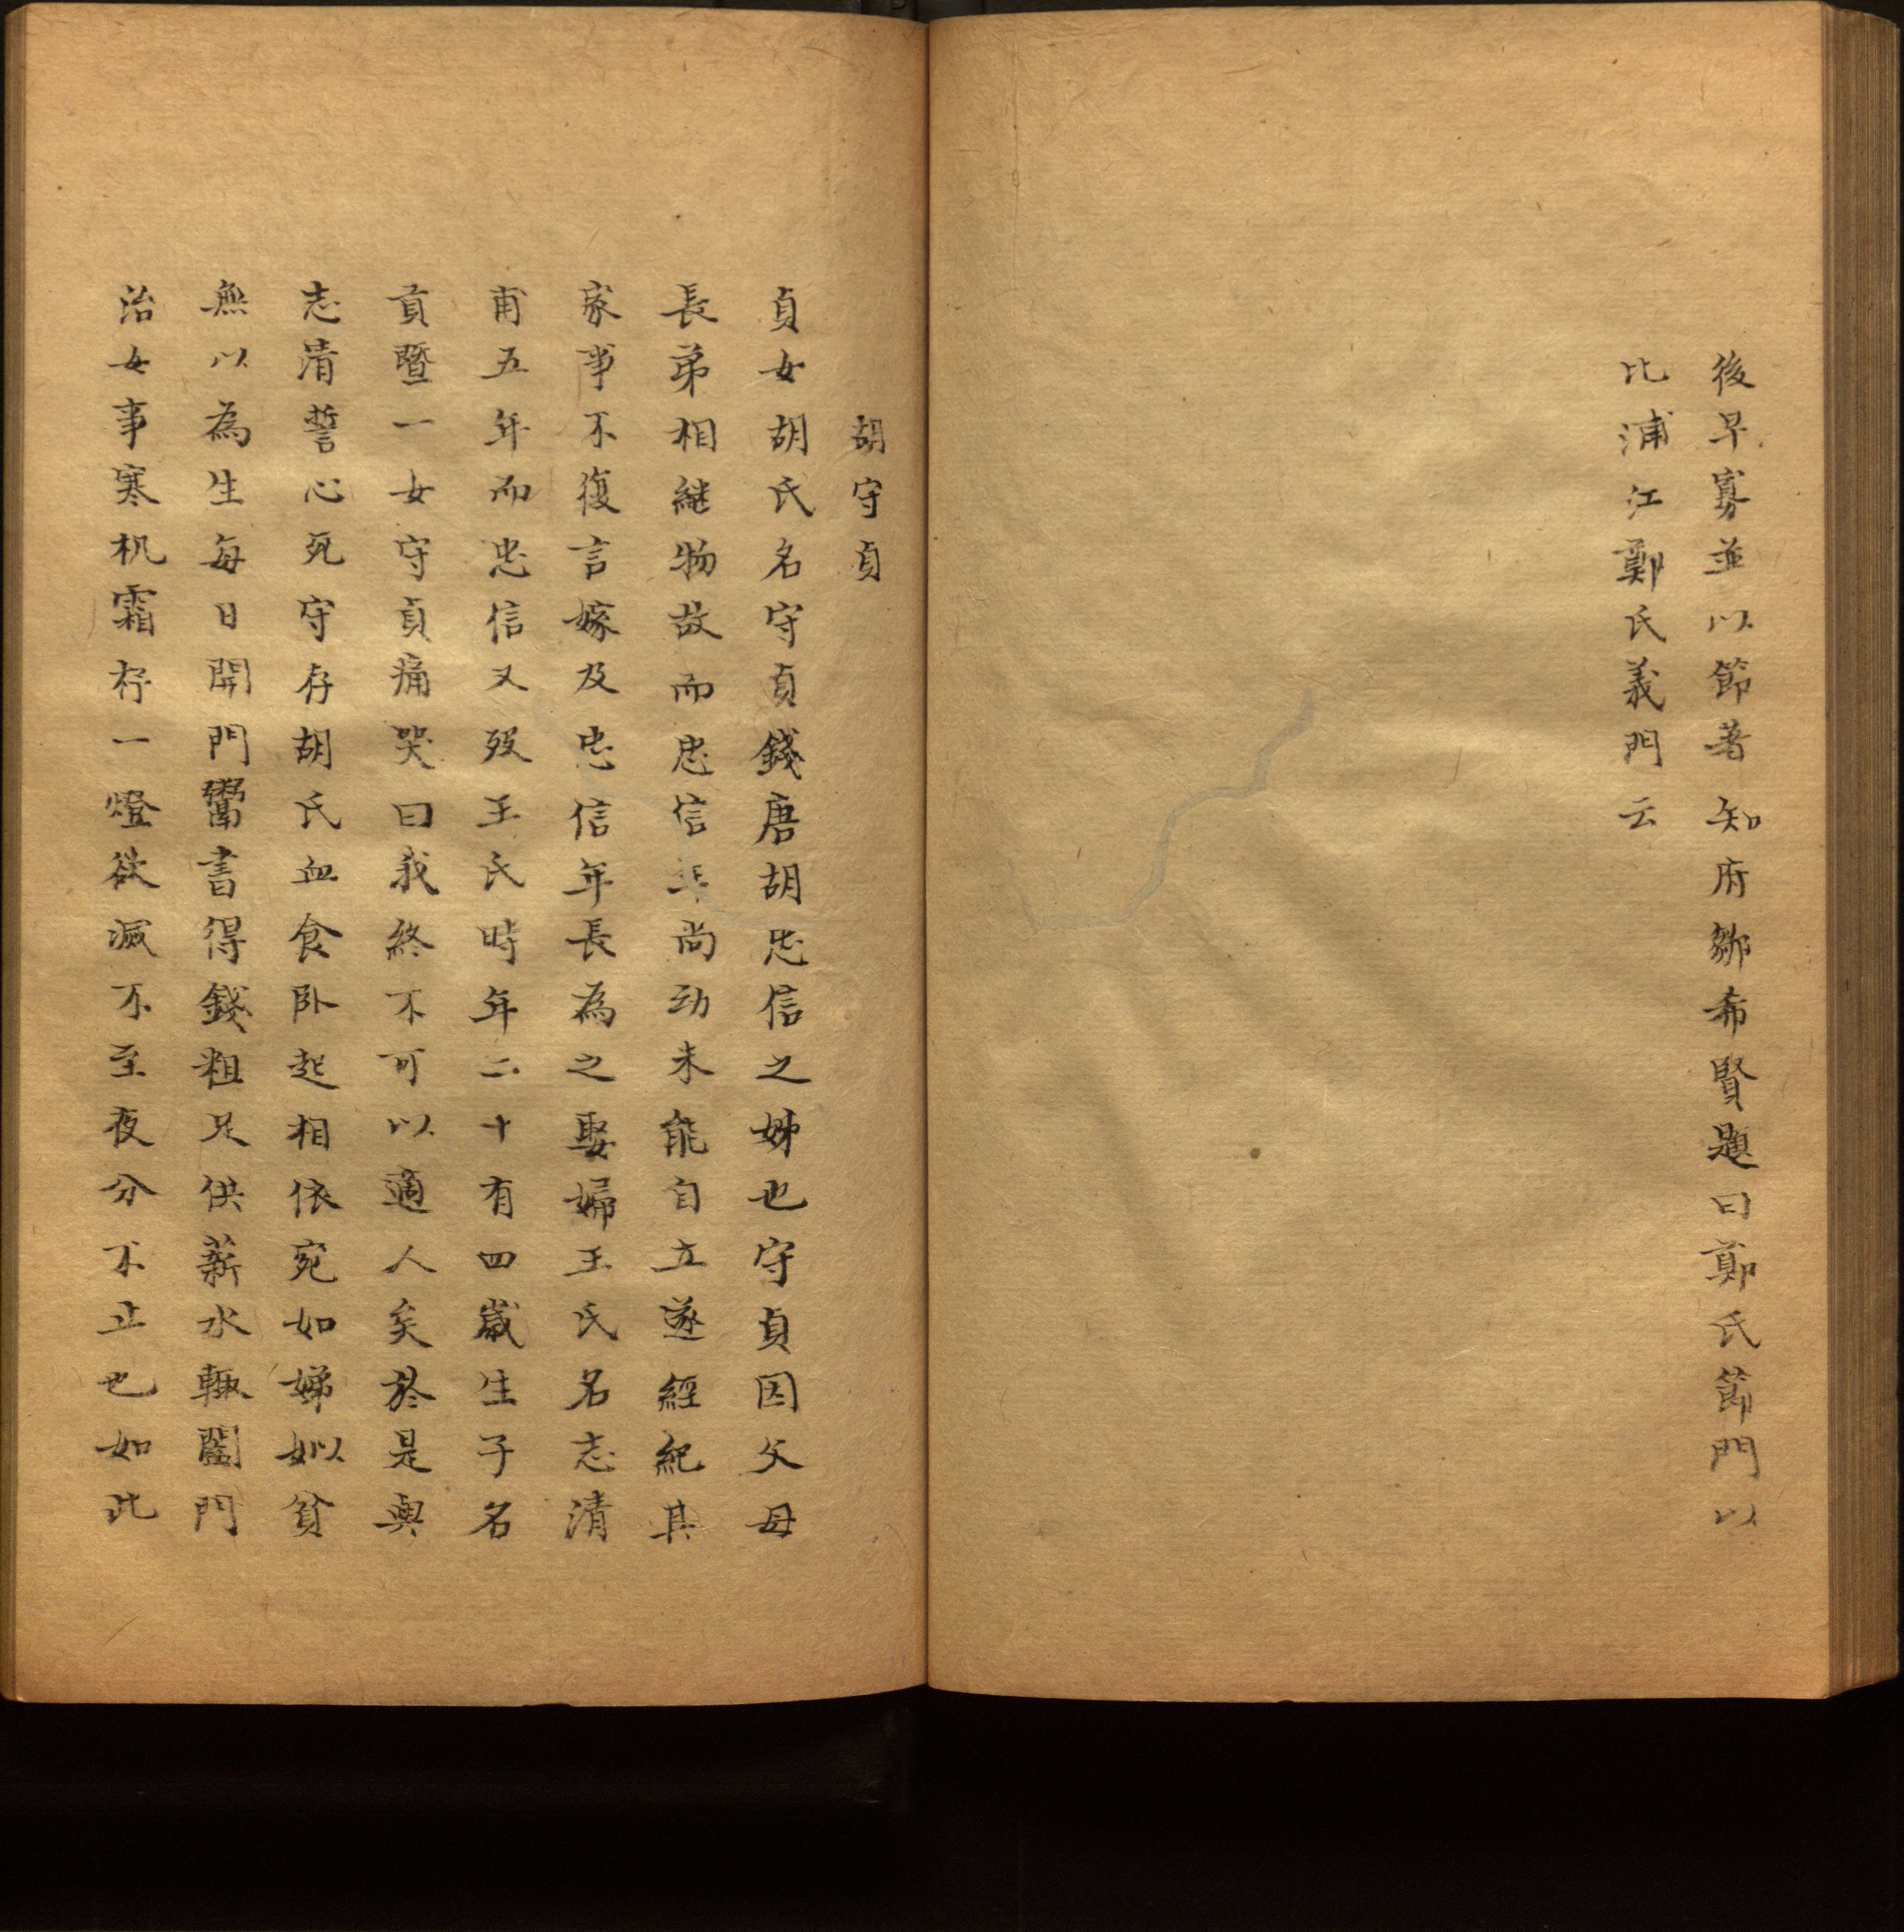 後早寡並以節著知府鄒希賢題曰鄭氏節門以
比浦江鄭氏義門云
胡守貞
貞女胡氏名守貞錢唐胡忠信之姊也守貞因父母
長弟相継物故而忠信年尚幼未能自立遂經紀其
家事不復言嫁及忠信年長為之娶婦王氏名志清
甫五年而忠信又歿王氏時年二十有四歲生子名
貢暨一女守貞痛哭曰我終不可以適人矣於是與
志清誓心死守存胡氏血食卧起相依宛如娣姒貧
無以為生每日開門鬻書得錢粗足供薪水輒闔門
治女事寒机霜杼一燈欲滅不至夜分不止也如此